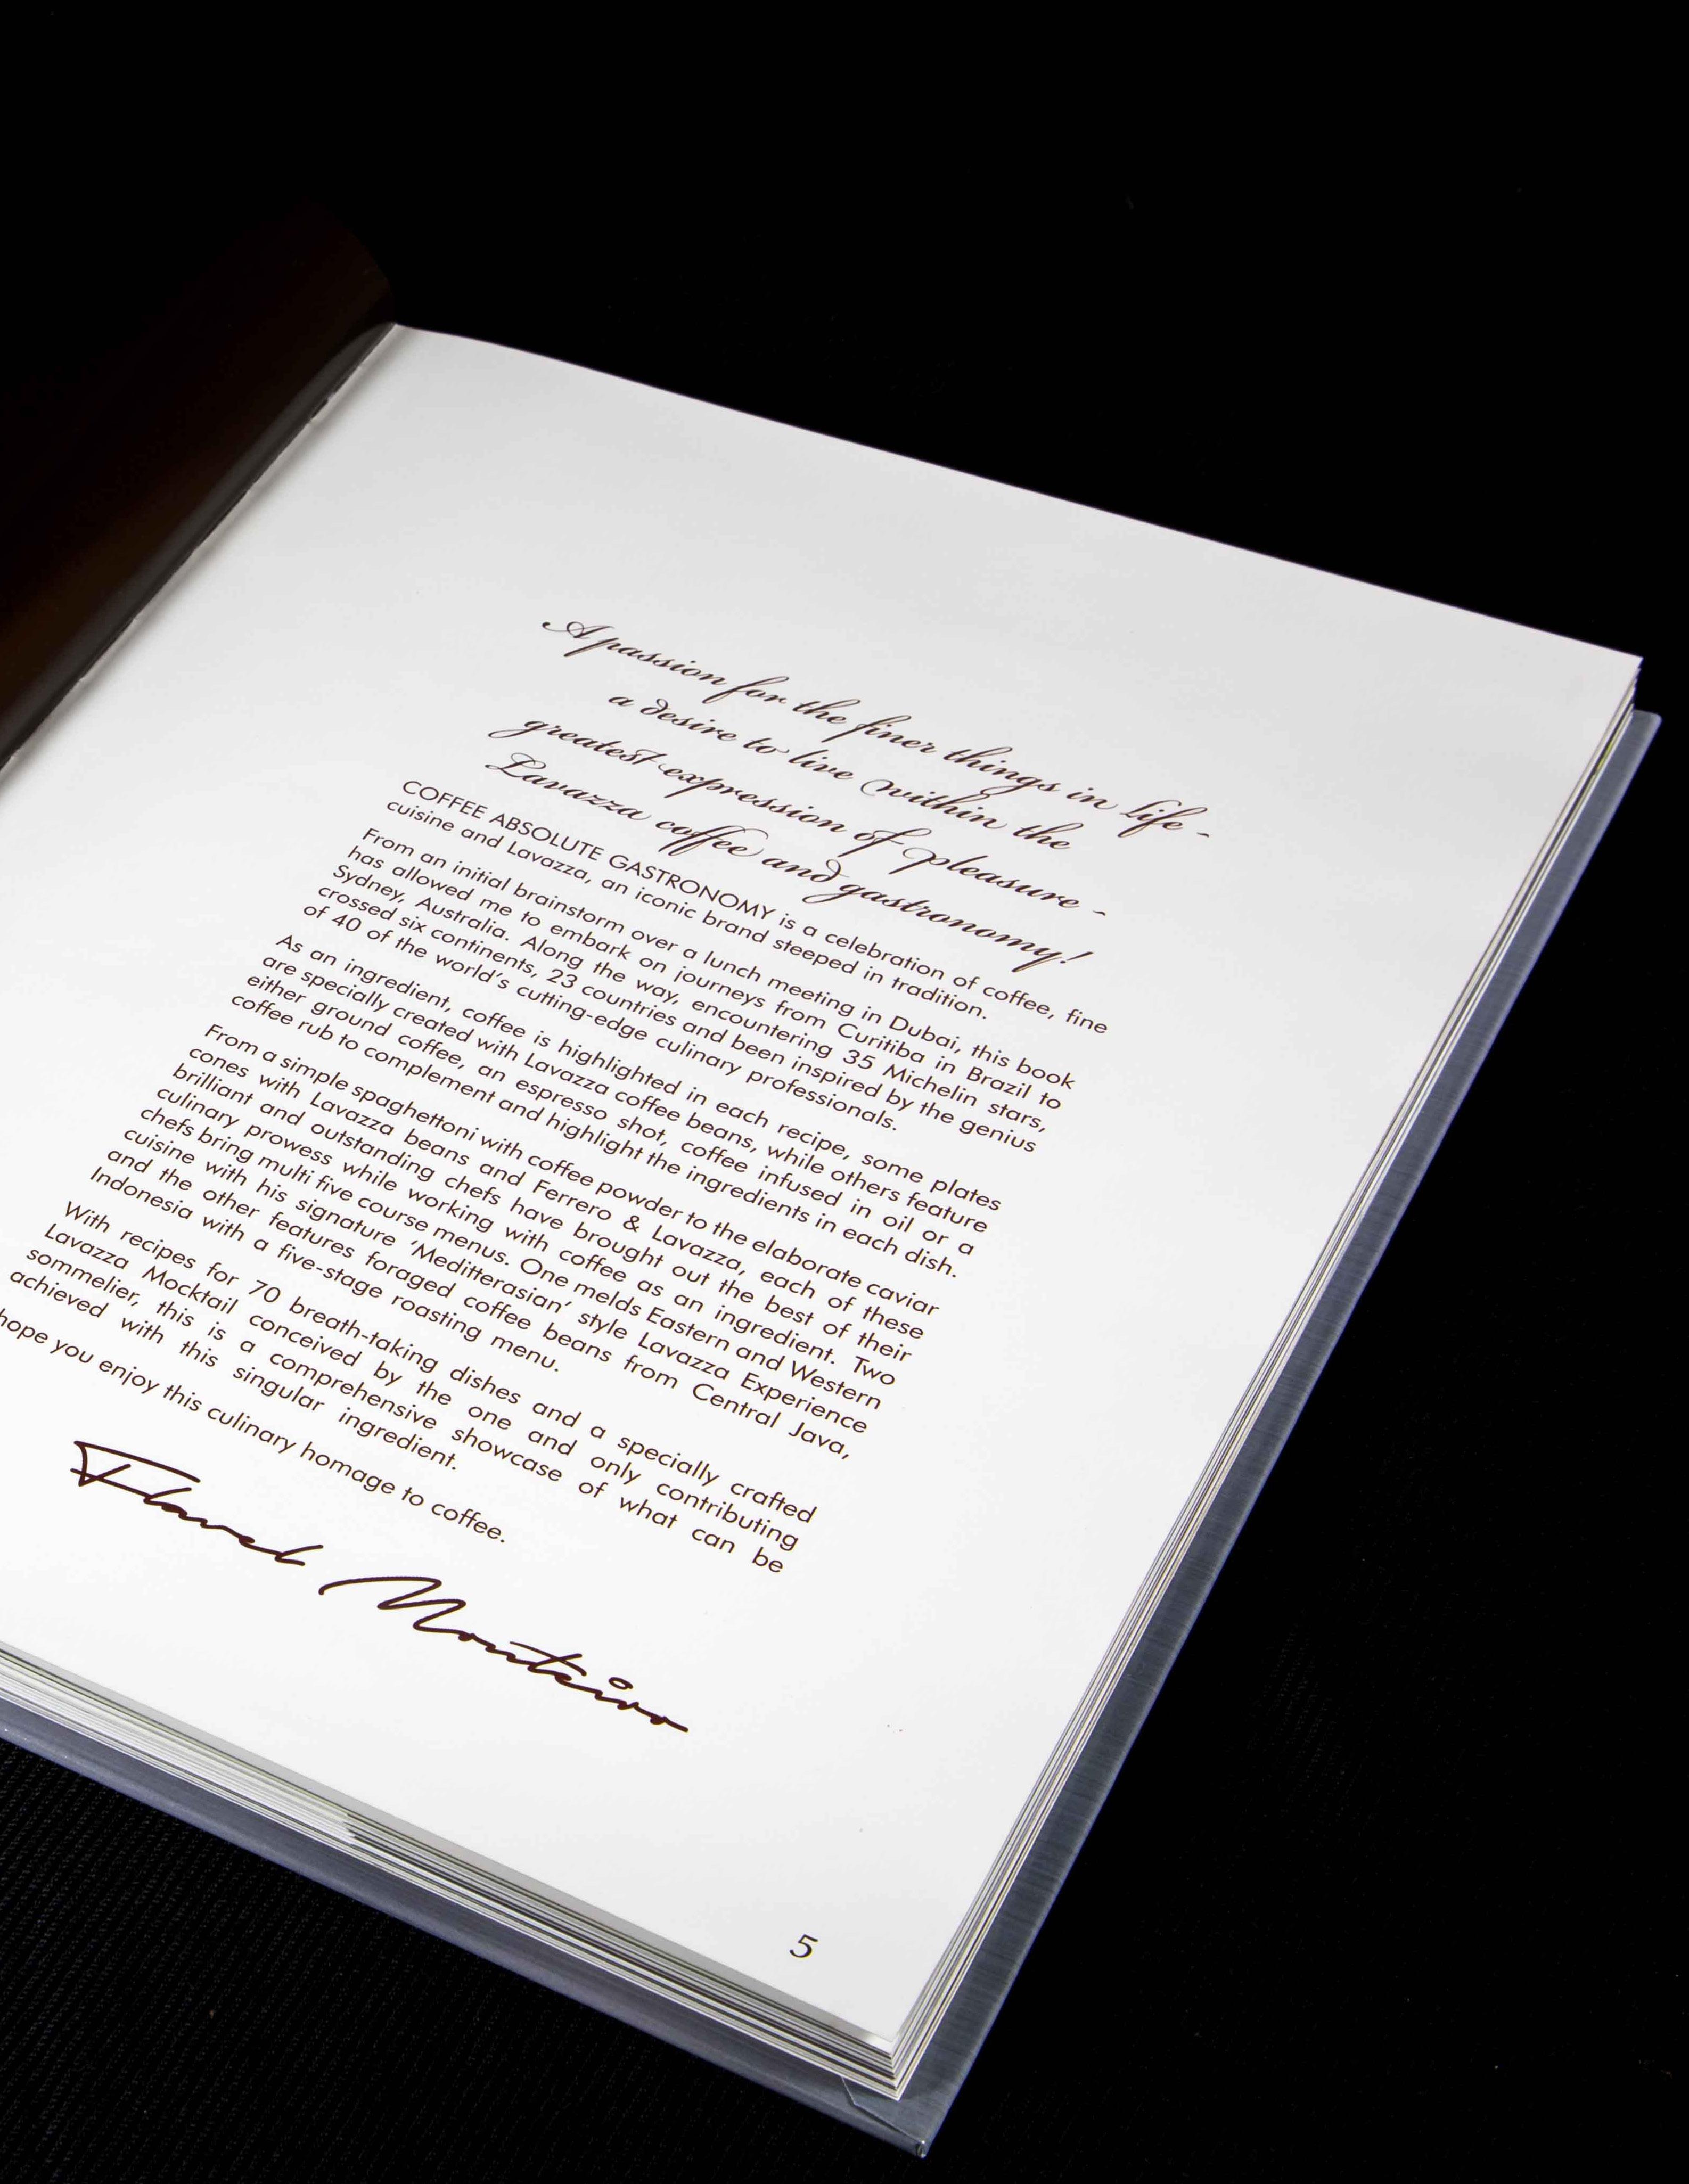 A passion for the finer things in life -
a desire to live within the
greatest expression of pleasure -
Lavazza coffee and gastronomy!
COFFEE ABSOLUTE GASTRONOMY is a celebration of coffee, fine
cuisine and Lavazza, an iconic brand steeped in tradition.
From an initial brainstorm over a lunch meeting in Dubai, this book
has allowed me to embark on journeys from Curitiba in Brazil to
Sydney, Australia. Along the way, encountering 35 Michelin stars,
crossed six continents, 23 countries and been inspired by the genius
of 40 of the world's cutting-edge culinary professionals.
As an ingredient, coffee is highlighted in each recipe, some plates
are specially created with Lavazza coffee beans, while others feature
either ground coffee, an espresso shot, coffee infused in oil or a
coffee rub to complement and highlight the ingredients in each dish.
From a simple spaghettoni with coffee powder to the elaborate caviar
cones with Lavazza beans and Ferrero & Lavazza, each of these
brilliant and outstanding chefs have brought out the best of their
culinary prowess while working with coffee as an ingredient. Two
chefs bring multi five course menus. One melds Eastern and Western
cuisine with his signature 'Meditterasian' style Lavazza Experience
and the other features foraged coffee beans from Central Java,
Indonesia with a five-stage roasting menu.
With recipes for 70 breath-taking dishes and a specially crafted
Lavazza Mocktail conceived by the one and only contributing
sommelier, this is a comprehensive showcase of what can be
achieved with this singular ingredient.
hope you enjoy this culinary homage to coffee.
Flavel Monteiro
5